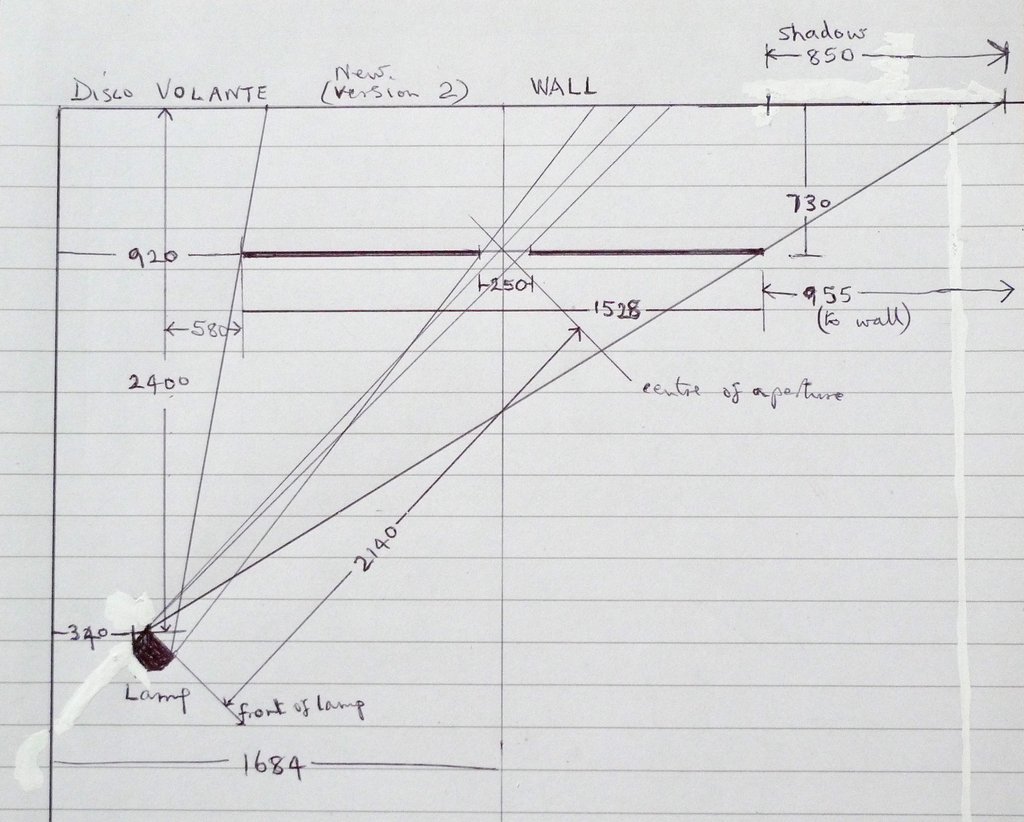 shadow
850
Disco VOLANTE
New.
(version 2)
WALL
730
920
250
955
(to wall)
1528
580
2400
centre of aperture
2140
340
Lamp
front of lamp
1684